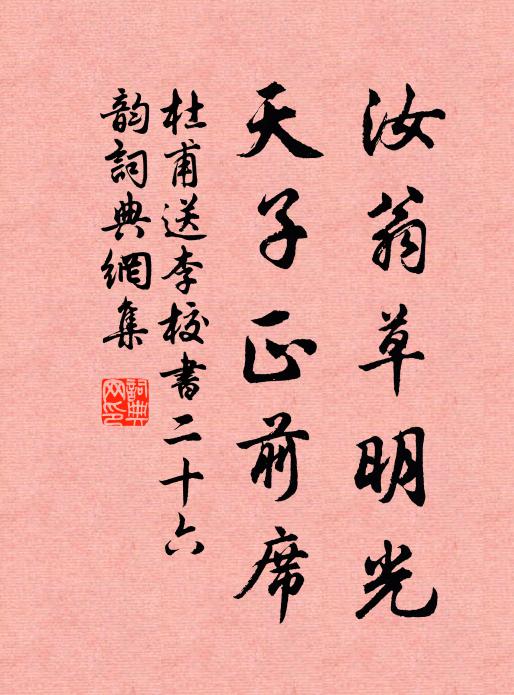 汝翁草明光
天子正前席
杜甫送李校書二十六
韵詞典網集
詞典网印